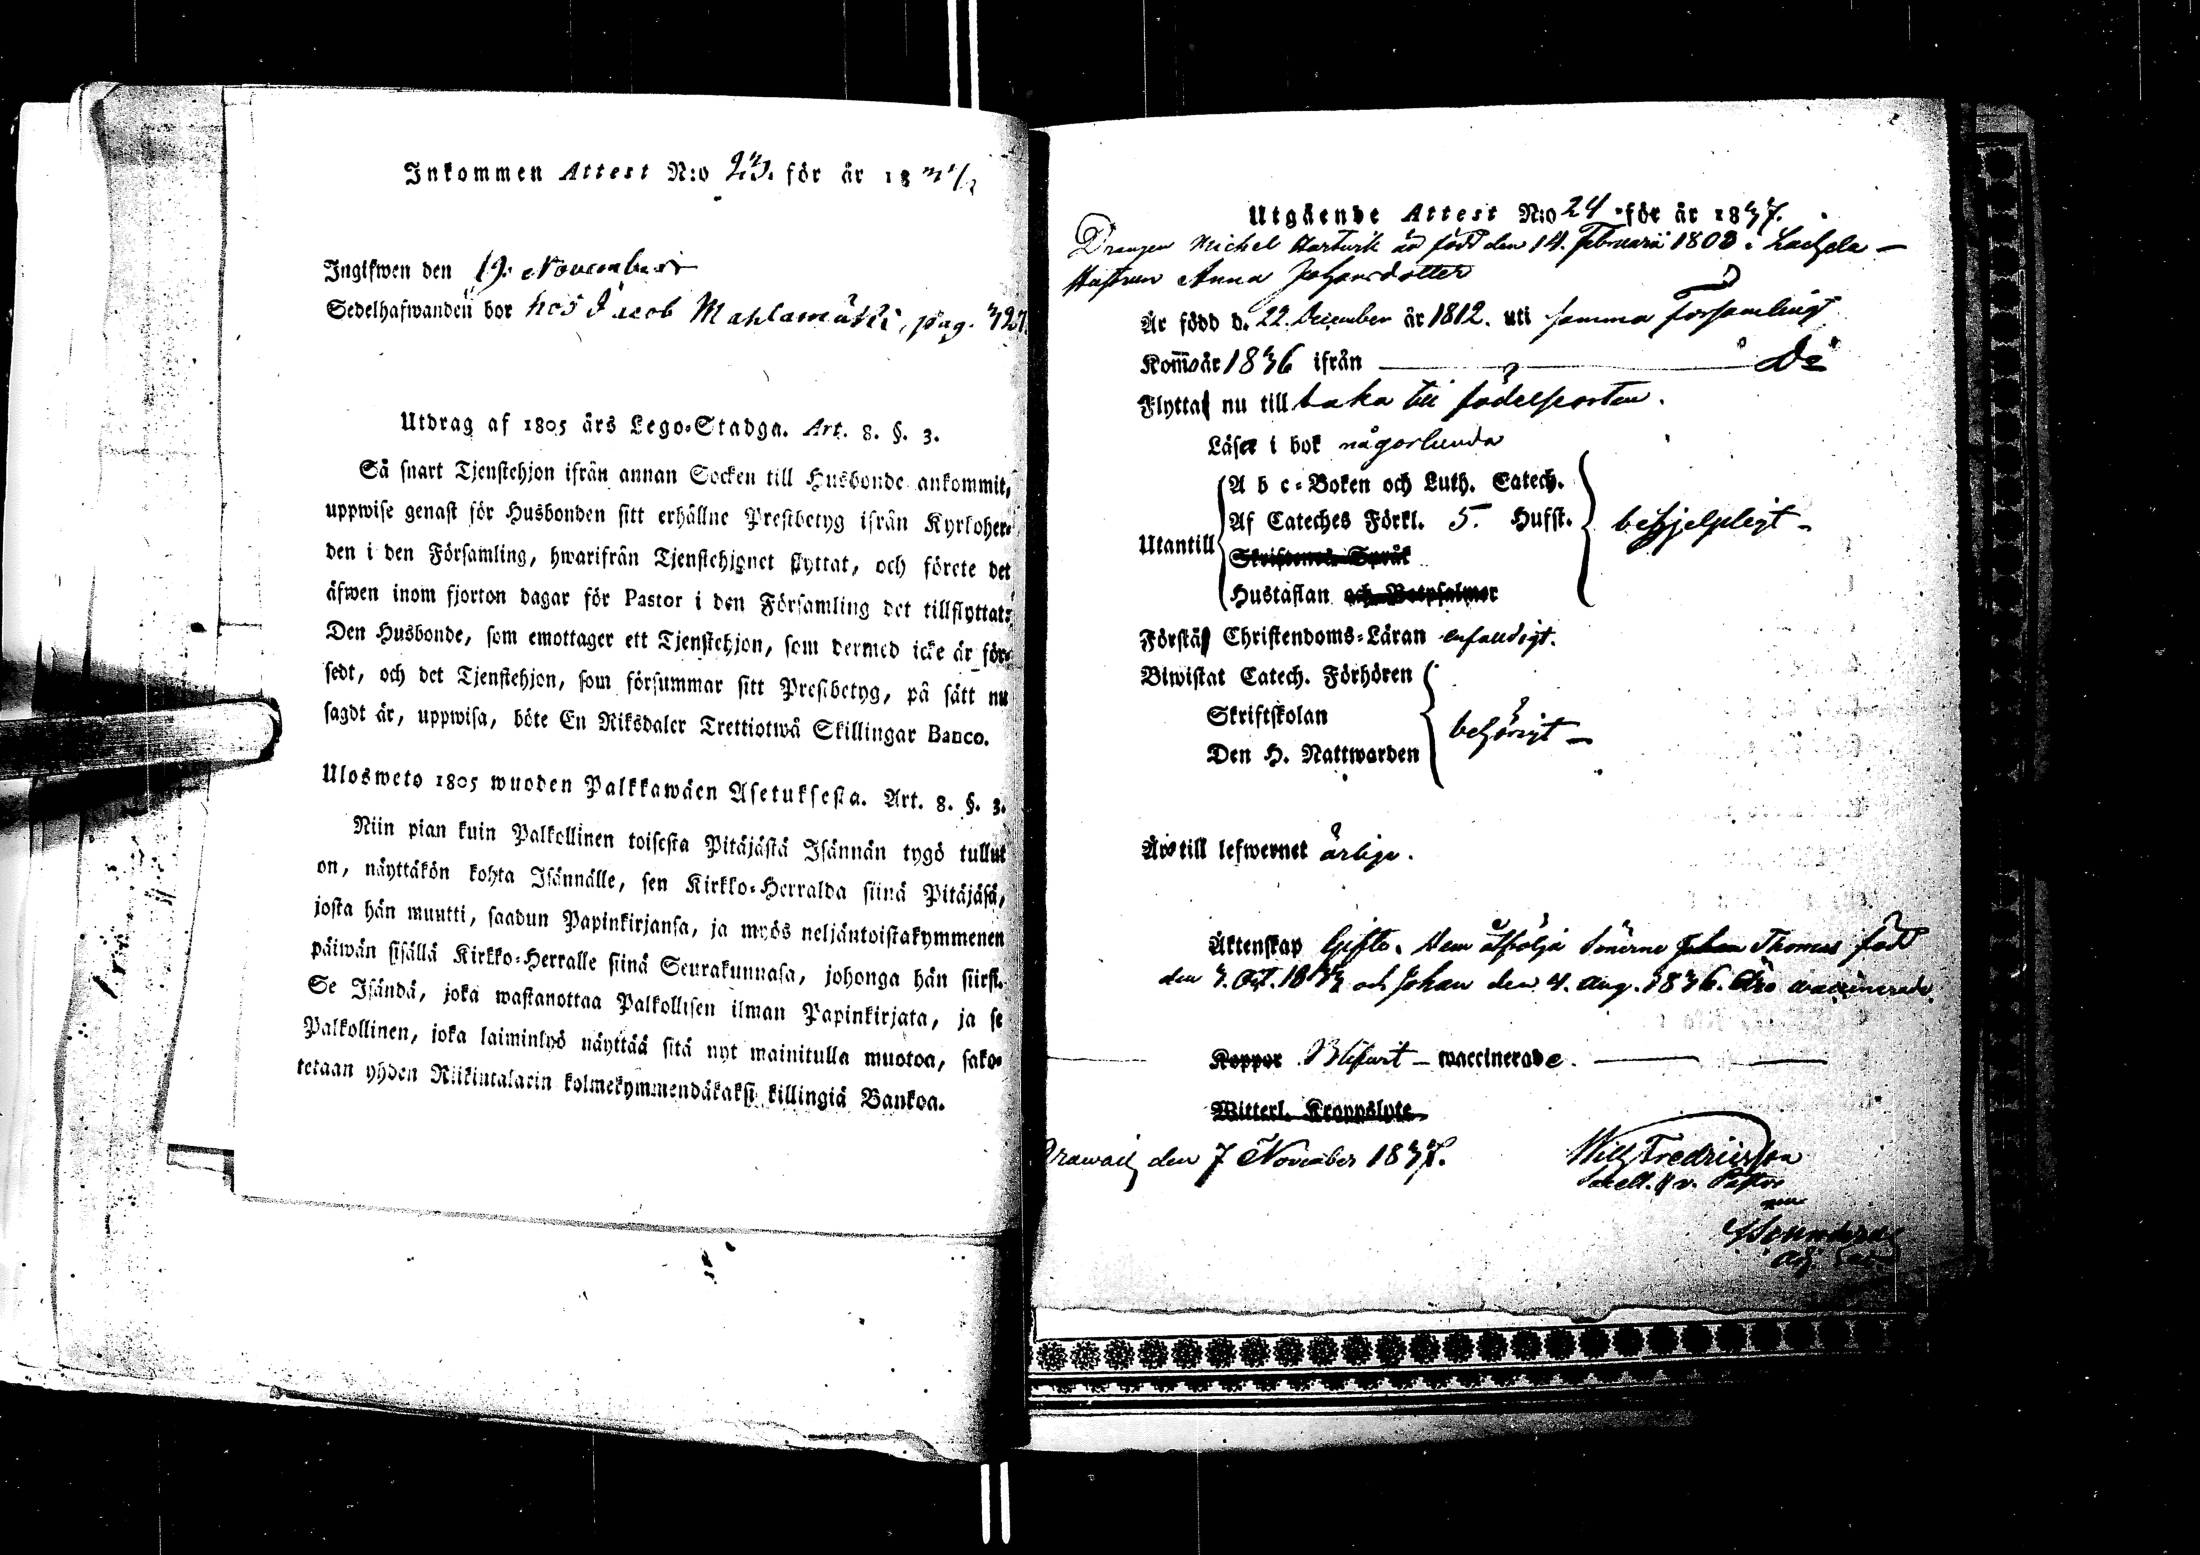 Inkommen Attest N:o 23. för år 18
Ingifwen den 19. November
Sedelhafwanden bor hos Jacob Mahlamäki, pag. 327.
Utdrag af 1805 års Lego-Stadga. Art. 8. §. 3.
Så snart Tjenstehjon ifrån annan Socken till Husbonde ankommit,
uppwise genast för Husbonden sitt erhållne Prestbetyg ifrån Kyrkoher-
den i den Församling, hwarifrån Tjenstehjonet flyttat, och förete det
äfwen inom fjorton dagar för Pastor i den Församling det tillflyttat:
Den Husbonde, som emottager ett Tjenstehjon, som dermed icke är för-
sedt, och det Tjenstehjon, som försummar sitt Prestbetyg, på sätt nu
sagdt är, uppwisa, böte En Riksdaler Trettiotwå Skillingar Banco.
Ulosweto 1805 wuoden Palkkawäen Asetuksesta. Art. 8. §. 3.
Niin pian kuin Palkollinen toisesta Pitäjästä Isännän tygö tullut
on, näyttäkön kohta Isännälle, sen Kirkko-Herralda siinä Pitäjäsä,
josta hän muutti, saadun Papinkirjansa, ja myös neljäntoistakymmenen
päiwän sisällä Kirkko-Herralle siinä Seurakunnasa, johonga hän siirsi.
Se Isändä, joka wastanottaa Palkollisen ilman Papinkirjata, ja se
Palkollinen, joka laiminlyö näyttää sitä nyt mainitulla muotoa, sako-
tetaan yhden Riikintalarin kolmekymmendäkaksi killingiä Bankoa.
Utgående Attest N:o 24 för år 1837.
Drängen Michel Hartwik är född den 14. Februarii 1808. Lachela
Hustrun Anna Johansdotter
Är född d. 22 December år 1812. uti samma församling
Kom̄o år 1836 ifrån D:o
Flytta nu till baka till födelseorten.
Läser i bok någorlunda
Utantill
A b c-Boken och Luth. Catech.
Af Cateches Förkl. 5. Hufst.
Skriftenes Språk
Hustaflan och Botpsalmer
behjelpligt
Förstå Christendoms-Läran enfaldigt.
Biwistat Catech. Förhören
Skriftskolan
Den H. Nattwarden
behörigt
Äro till lefwernet ärlige.
Äktenskap Gifte. Dem åtfölja Sönerne Thomas född
den 3. Oct. 1833 och Johan den 4. Aug. 1836. Äro vaccinerade.
Koppor Blifvit waccinerade.
Witterl. Kroppslyte
den 7 November 1837.
Will Fredriksson
Sacell. & v. Pastor